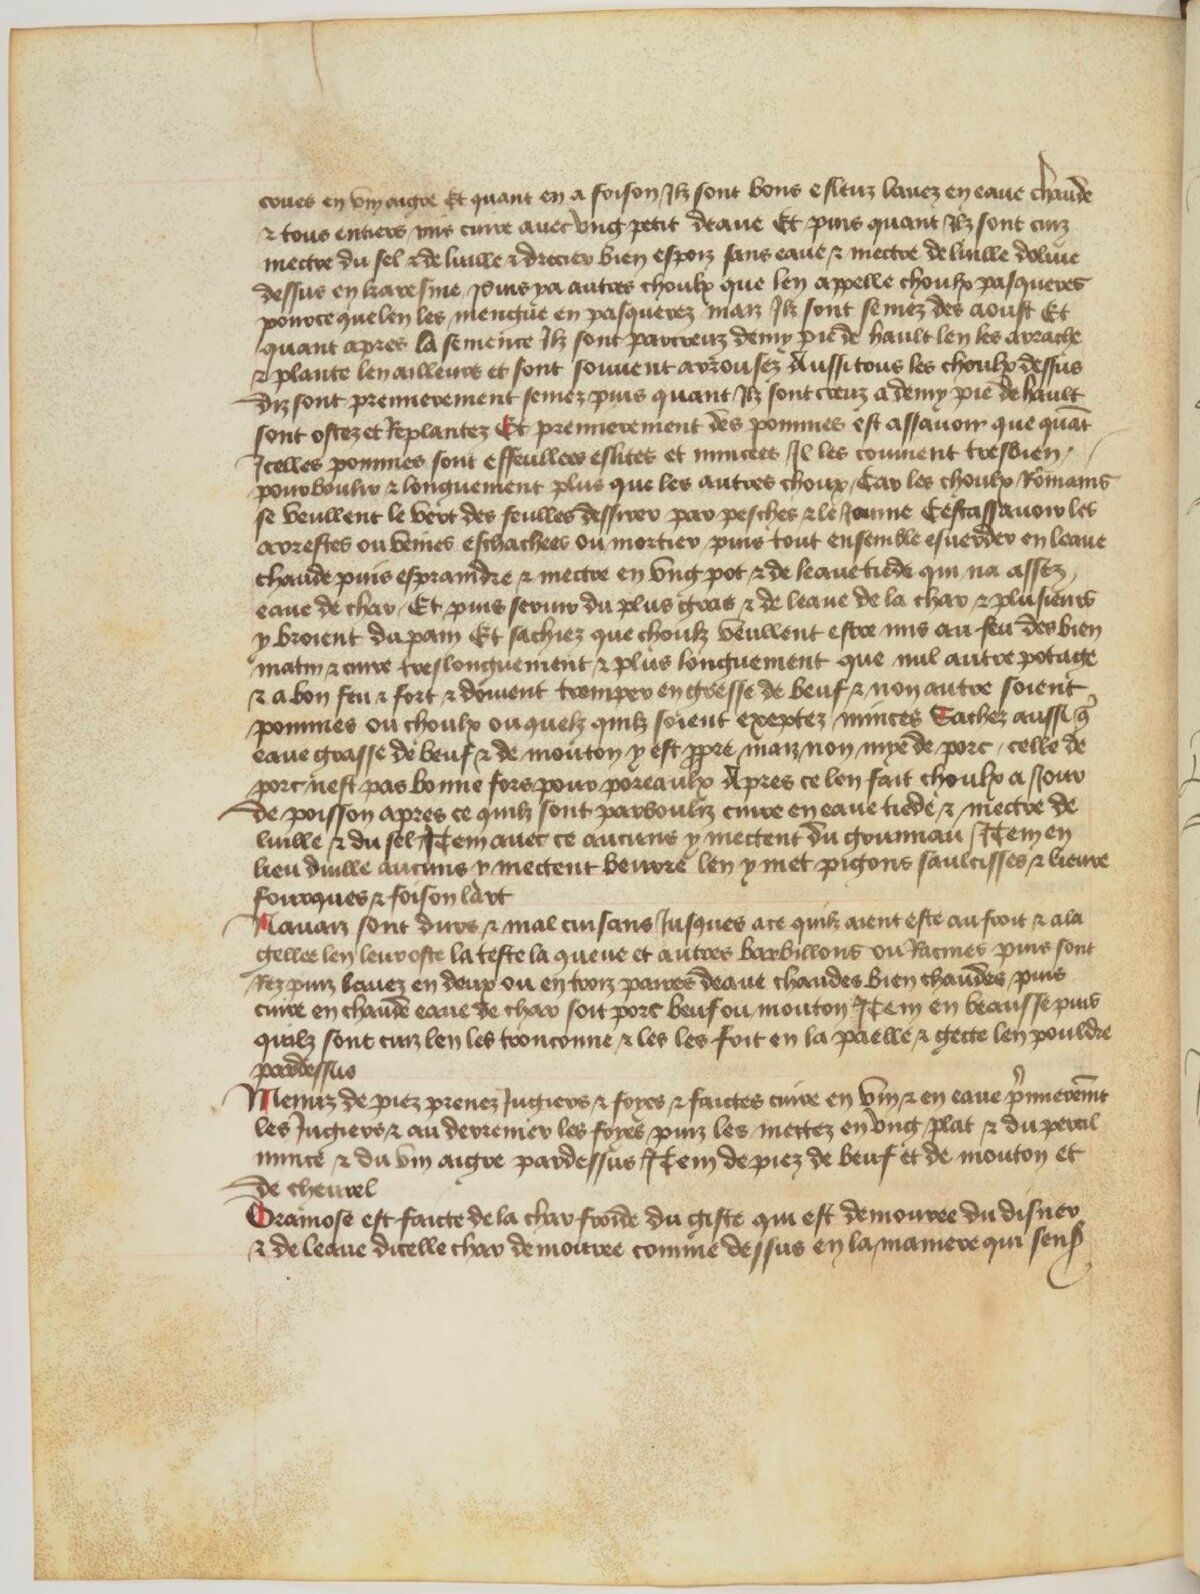 coues en vin aigre Et quant en a foison Ilz sont bons esleuz lauez en eaue chaude
⁊ tous entiers mis cuire auec ung petit deaue Et puis quant Ilz sont cuiz
mectre du sel ⁊ de luille ⁊ drecier bien espoiz sans eaue ⁊ mectre de luille doliue
dessus en karesme Puis ya autres choulx que len appelle choulx pasqueres
pource que len les mengue en pasquerez maiz Ilz sont semez des aoust Et
quant apres la semence Ilz sont parcreuz demy pie de hault len les arrache
⁊ plante len ailleurs et sont souuent arrousez Aussi tous les choulx dessus
diz sont premierement semez puis quant Ilz sont creuz a demy pie de hault
sont ostez et Replantez Et premierement des pommes est assauoir que quāt
Icelles pommes sont effeullees eslites et mincees Il les conuient tresbien
pourboulir ⁊ longuement plus que les autres choux Car les choulx Rōmains
se veullent le vert des feulles dessirer par pesches ⁊ le Jaune Cestassauoir les
arrestes ou veines eschachees ou mortier puis tout ensemble esuerder en leaue
chaude puis espraindre ⁊ mectre en ung pot ⁊ de leaue tiede qui na assez
eaue de char Et puis seruir du plus gras ⁊ de leaue de la char ⁊ plusieurs
y broient du pain Et sachiez que choulz veullent estre mis au feu des bien
matin ⁊ cuire treslonguement ⁊ plus longuement que nul autre potage
⁊ a bon feu ⁊ fort ⁊ doiuent tremper en gresse de beuf ⁊ non autre soient
pommes ou choulx ou quelz quilz soient exeptez minces Sachez aussi q̄
eaue grasse de beuf ⁊ de mouton y est ꝓpre maiz non mye de porc celle de
porc nest pas bonne fors pour poreaulx Apres ce len fait choulx a Jour
de poisson apres ce quilz sont parbouliz cuire en eaue tiede ⁊ mectre de
luille ⁊ du sel Item auec ce aucuns y mectent du gruuiau Item en
lieu duille aucuns y mectent beurre len y met pigons saulcisses ⁊ lieure
fourques ⁊ foison lart
Nauaiz sont durs ⁊ mal cuisans Jusques a ce quilz aient este au froit ⁊ a la
gellee len leur oste la teste la queue et autres barbillons ou Racines puis sont
Rez puiz lauez en deux ou en troiz paires deaue chaudes bien chaudes puis
cuire en chaude eaue de char soit porc beuf ou mouton Item en beausse puis
quilz sont cuiz len les tronconne ⁊ les les frit en la paelle ⁊ gecte len pouldre
pardessus
Menuz de piez prenez Jugiers ⁊ foyes ⁊ faictes cuire en vin ⁊ en eaue p̄mieremēt
les Jugiers ⁊ au derrenier les foyes puiz les mettez en ung plat ⁊ du percil
mince ⁊ du vin aigre pardessus Item de piez de beuf et de mouton et
de cheurel
Gramose est faicte de la char froide du giste qui est demouree du disner
⁊ de leaue dicelle char demouree comme dessus en la maniere qui sensꝭ